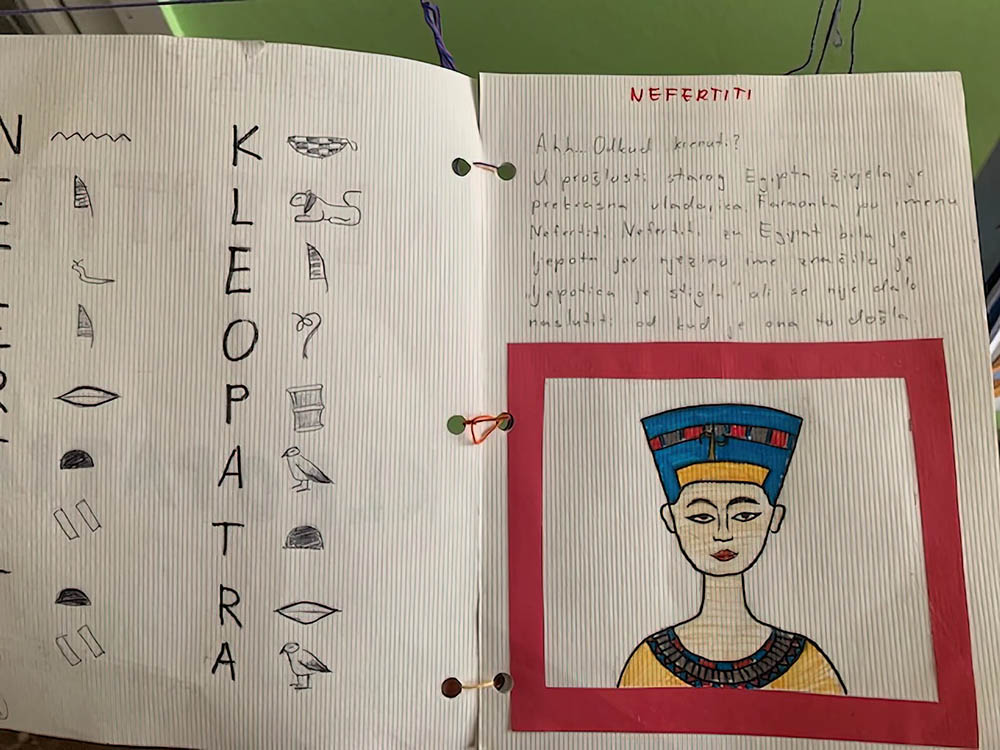 N
E
E
R
K
L
E
O
P
A
T
R
A
NEFERTITI
Ahh... Odkud krenuti?
U prošlosti starog Egipta živjela je
prekrasna vladarica po imenu
Nefertiti. Nefertiti za bila je
ljepota jer njezino ime značilo je
"ljepotica je stigla" ali se nije dalo
naslutiti od kud je ona tu došla.